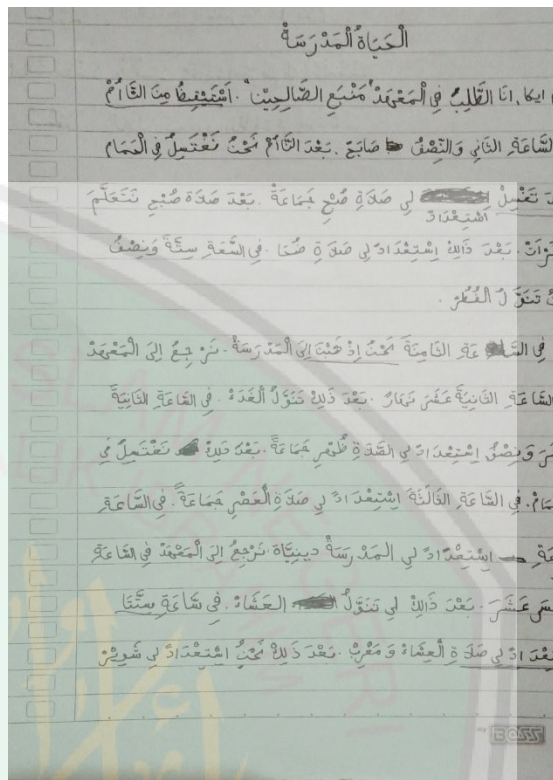 الْحَيَاةُ الْمَدْرَسَةُ
ايكا. اَنَا الطَّلِبُ فِي الْمَعْهَدْ "مَنْبَعِ الصَّالِحِيْنَ". اَسْتَيْقِظُ مِنَ النَّاُمْ
السَّاعَةِ الثَّانِي وَالنِّصْفُ صَابَحْ. بَعْدَ النَّاُمْ نَحْنُ نَغْتَسِلُ فِي الْحَمَام
تَغْسِلْ اسْتِعْدَادْ لِي صَلَاةِ صُبْحِ جَمَاعَةً. بَعْدَ صَلَاة صُبْحِ نَتَعَلَّمَ
بَعْدَ ذَالِكْ اِسْتِعْدَادْ لِي صَلَاةِ ضُحَا. فِي السَّعَةِ سِتَّةَ وَنِصْفُ
تَنَوَّلُ الْفُطُرْ.
فِي السَّاعَةِ الثَّامِنَةَ نَحْنُ اِذْهَبْنَ اِلَى الْمَدْرَسَةْ. نَرْجِعُ اِلَى الْمَعْهَدْ
السَّاعَةِ الثَّانِيَةَ عَشَرَ نَهَارْ. بَعْدَ ذَلِكْ تَنَوَّلُ الْغَدَءْ. فِي السَّاعَةِ الثَّانِيَةَ
وَنِصْفُ اِسْتِعْدَادْ لِي الصَّلَاةِ ظُهْرِ جَمَاعَةً. بَعْدَ ذَلِكْ نَغْتَسِلُ فِي
فِي السَّاعَةِ الثَّالِثَةَ اِسْتِعْدَادْ لِي صَلَاةِ الْعَصْرِ جَمَاعَةً. فِي السَّاعَةِ
اِسْتِعْدَادْ لِي الْمَدْرَسَةْ دِيْنِيَّة. نَرْجِعُ اِلَى الْمَعْهَدْ فِي السَّاعَةِ
عَشَرَ. بَعْدَ ذَالِكْ لِي تَنَوَّلُ الْعَشَاءْ. فِي سَّاعَةِ سِتَّتَا
لِي صَلَاةِ الْعِشَاءْ وَ مَغْرِبْ. بَعْدَ ذَلِكْ نَحْنُ اِسْتِعْدَادْ لِي
BOSS